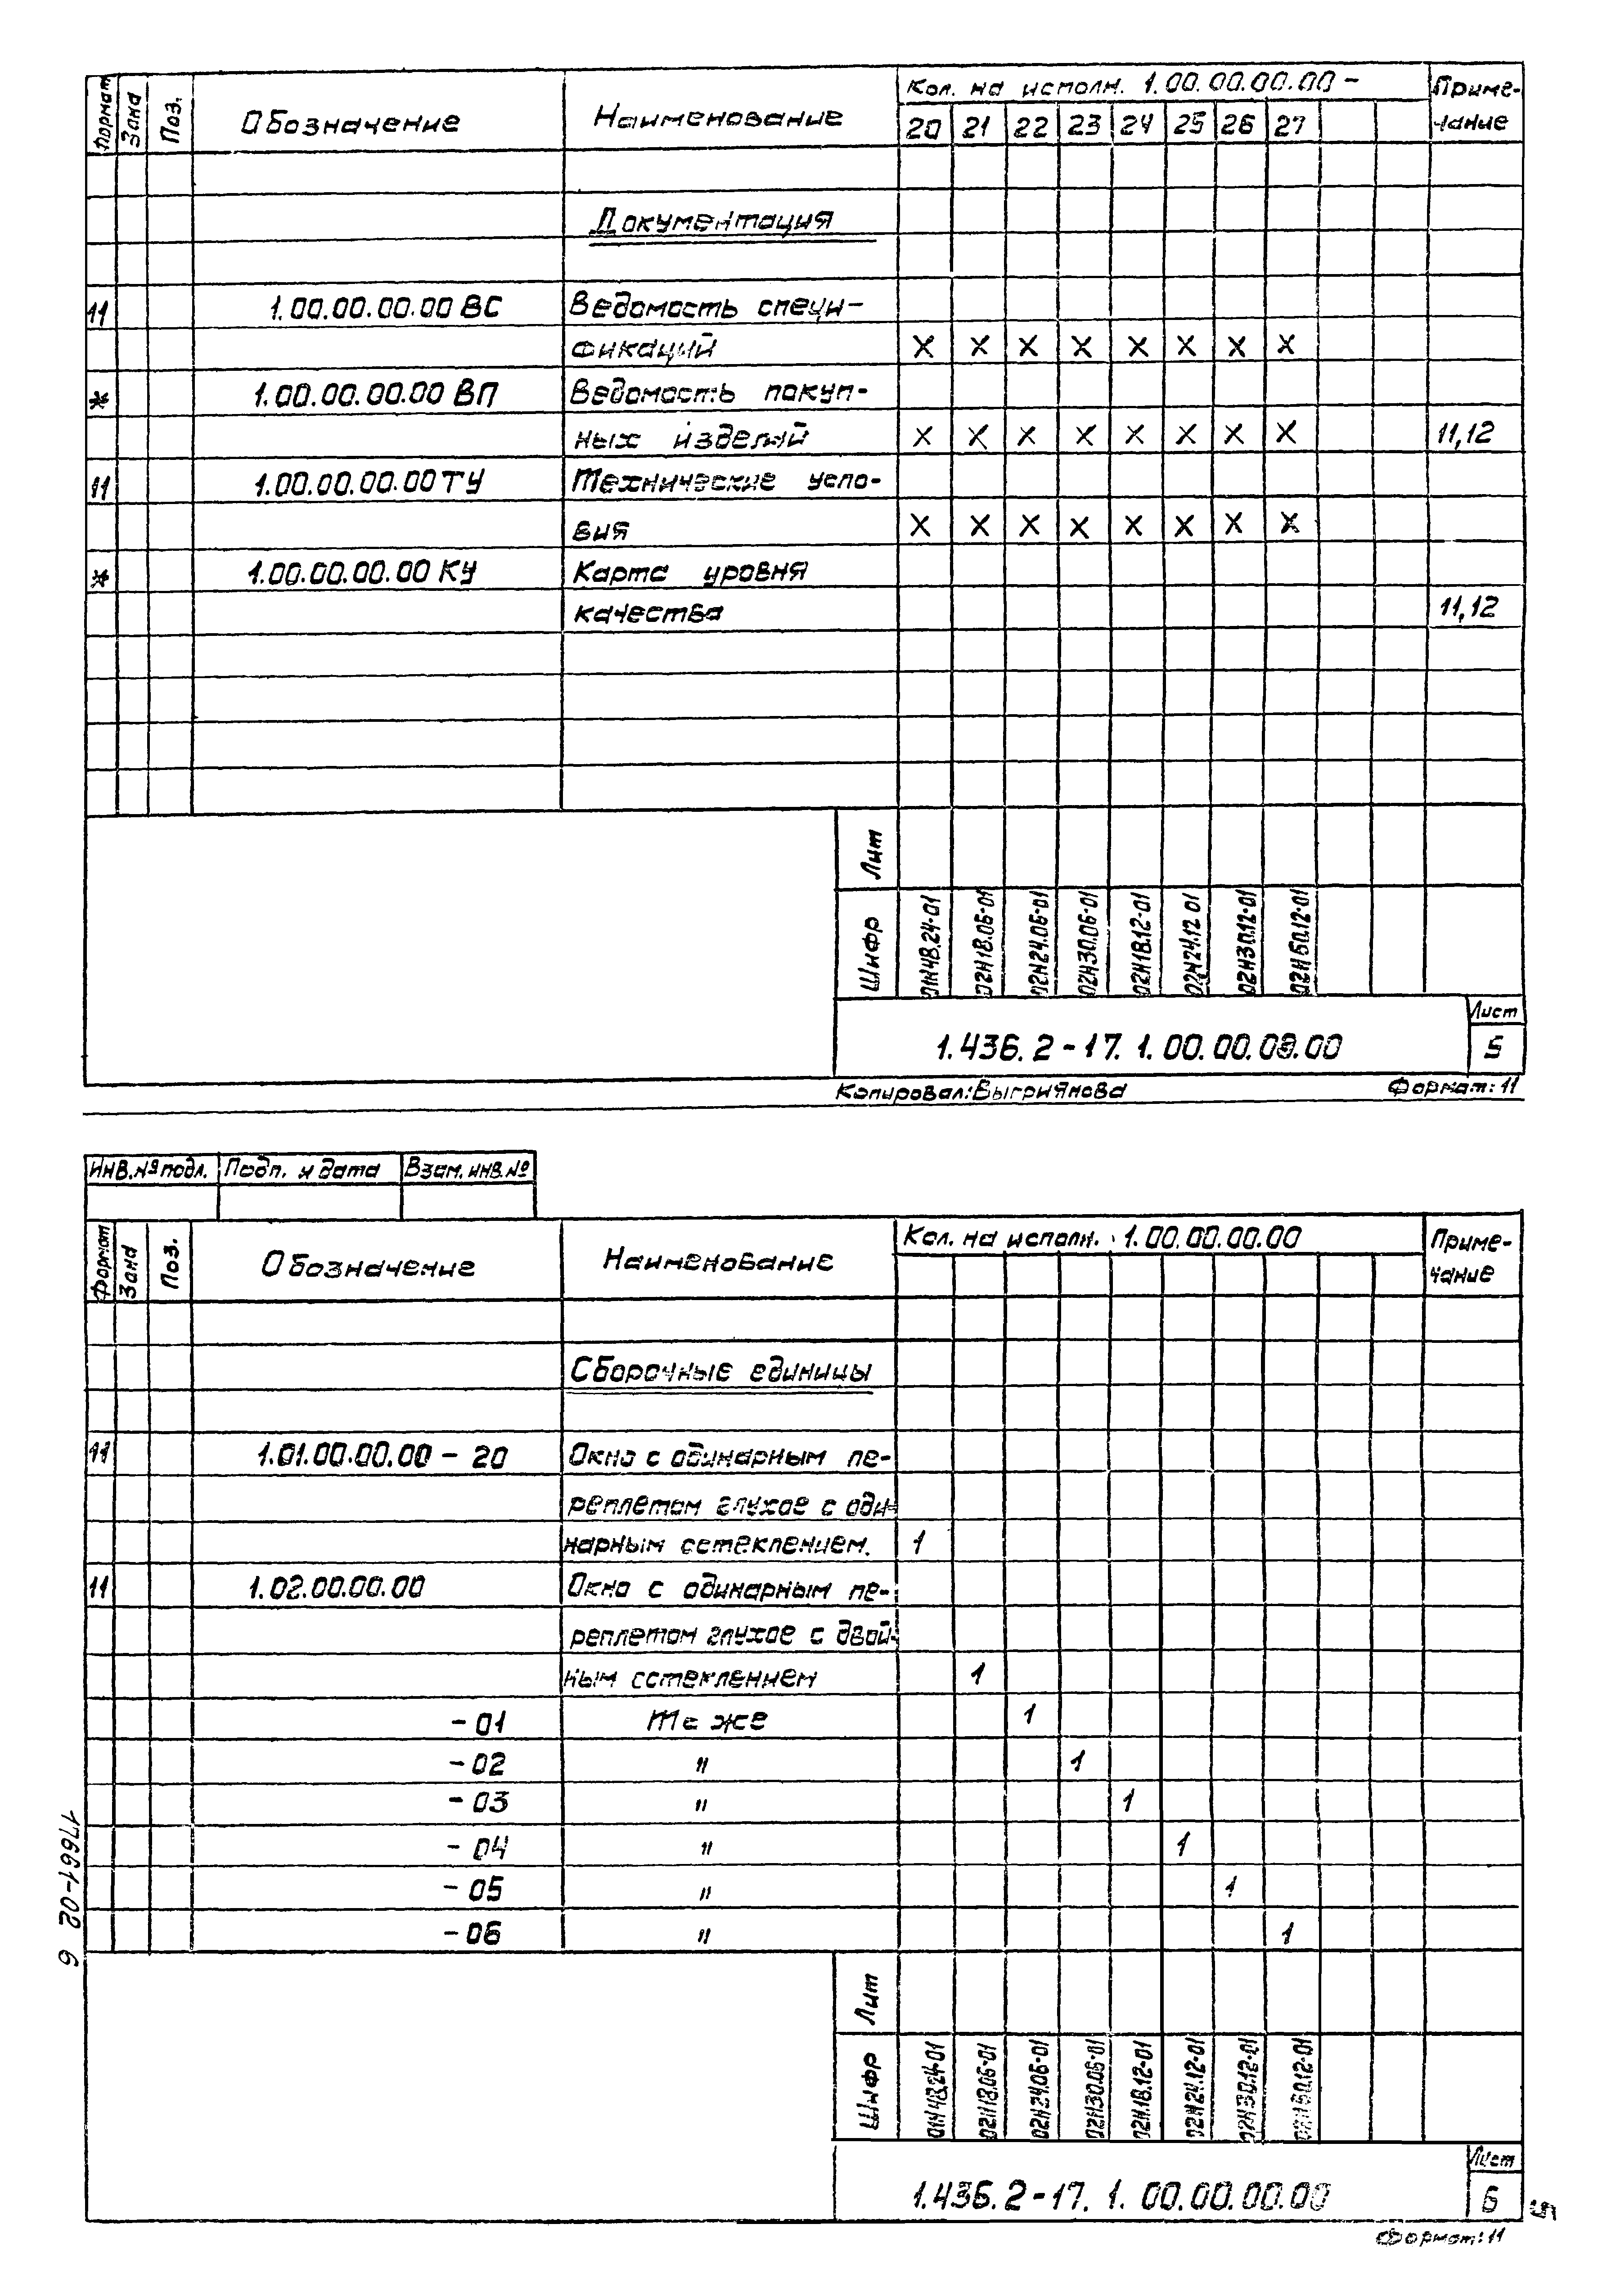 Формат Зона Поз. Обозначение Наименование Кол. на исполн. 1.00.00.00.00 – Приме-
20 21 22 23 24 25 26 27 чание
Документация
11 1.00.00.00.00 ВС Ведомость специ-
фикаций X X X X X X X X
* 1.00.00.00.00 ВП Ведомость покуп-
ных изделий X X X X X X X X 11,12
11 1.00.00.00.00 ТУ Технические усло-
вия X X X X X X X X
* 1.00.00.00.00 КУ Карта уровня
качества 11,12
Лит
Шифр 01Н48.24-01 02Н18.06-01 02Н24.06-01 02Н30.06-01 02Н18.12-01 02Н24.12 01 02Н30.12-01 02Н60.12-01
Лист
1.436.2-17. 1.00.00.00.00 5
Копировал: Выгриянова Формат: 11
Инв.№ подл. Подп. и дата Взам. инв. №
Формат Зона Поз. Обозначение Наименование Кол. на исполн. 1.00.00.00.00 Приме-
чание
Сборочные единицы
11 1.01.00.00.00 – 20 Окно с одинарным пе-
реплетом глухое с оди-
нарным остеклением. 1
11 1.02.00.00.00 Окно с одинарным пе-
реплетом глухое с двой-
ным остеклением 1
– 01 То же 1
– 02 " 1
– 03 " 1
– 04 " 1
– 05 " 1
– 06 " 1
17661-02 6
Лит
Шифр 01Н48.24-01 02Н18.06-01 02Н24.06-01 02Н30.06-01 02Н18.12-01 02Н24.12-01 02Н30.12-01 02Н60.12-01
Лист
1.436.2-17. 1. 00.00.00.00 6
Формат: 11